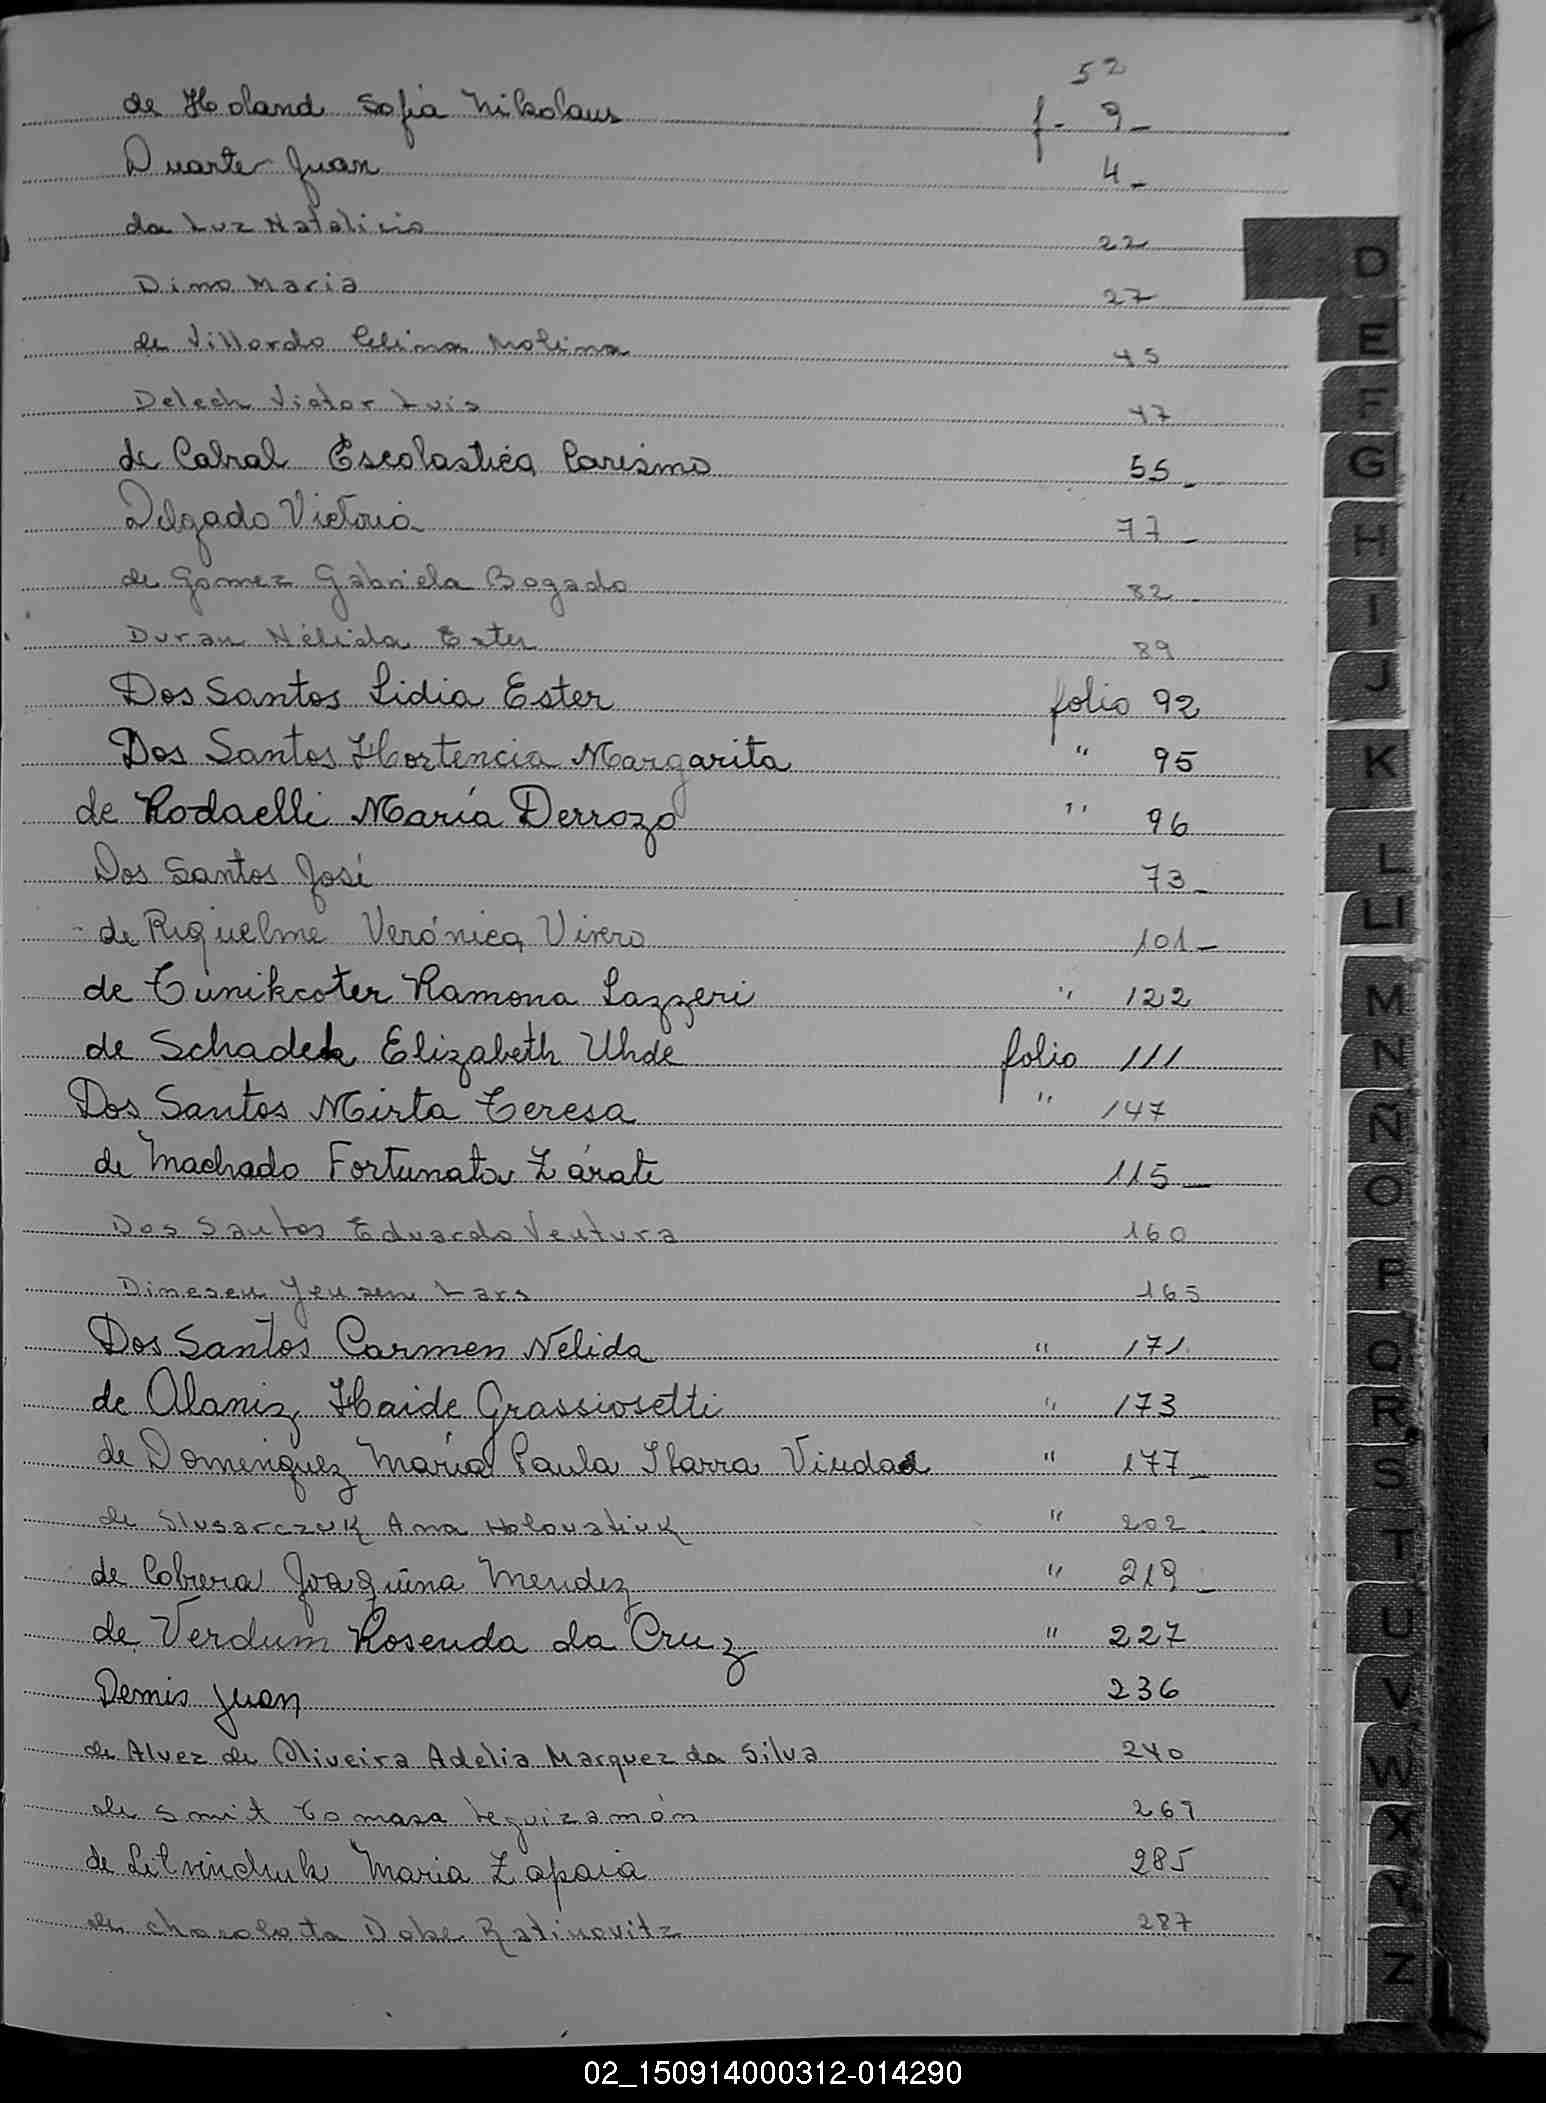 52
de Holand Sofia Nikolaus f- 9-
Duarte Juan 4-
da Luz Natalicio 22
Dimo Maria 27
de Villordo Celina Molina 45
Delech Victor Luis 47
de Cabral Escolastica Carísmo 55-
Delgado Victoria 77-
de Gomez Gabriela Bogado 82-
Duran Nélida Ester 89
Dos Santos Lidia Ester folio 92
Dos Santos Hortencia Margarita " 95
de Rodaelli María Derrozo " 96
Dos Santos José 73-
de Riquelme Verónica Vivero 101-
de Tunikcoter Ramona Lazzeri " 122
de Schadek Elizabeth Uhde folio 111
Dos Santos Mirta Teresa " 147
de Machado Fortunata Zárate 115-
Dos Santos Eduardo Ventura 160
Dinesen Jensen Lars 165
Dos Santos Carmen Nélida " 171
de Alaniz Haide Grassiosetti " 173
de Dominguez María Paula Ibarra Viuda " 177-
de Slusarczuk Ana Holovatiuk " 202-
de Cabrera Joaquina Mendez " 219-
de Verdum Rosenda da Cruz " 227
Demis Juan 236
de Alvez de Oliveira Adelia Marquez da Silva 240
de Smit Tomasa Leguizamón 267
de Litvinchuk Maria Zapaia 285
de 287
D
E
F
G
H
I
J
K
L
LL
M
N
Ñ
O
P
Q
R
S
T
U
V
W
X
Y
Z
02_150914000312-014290